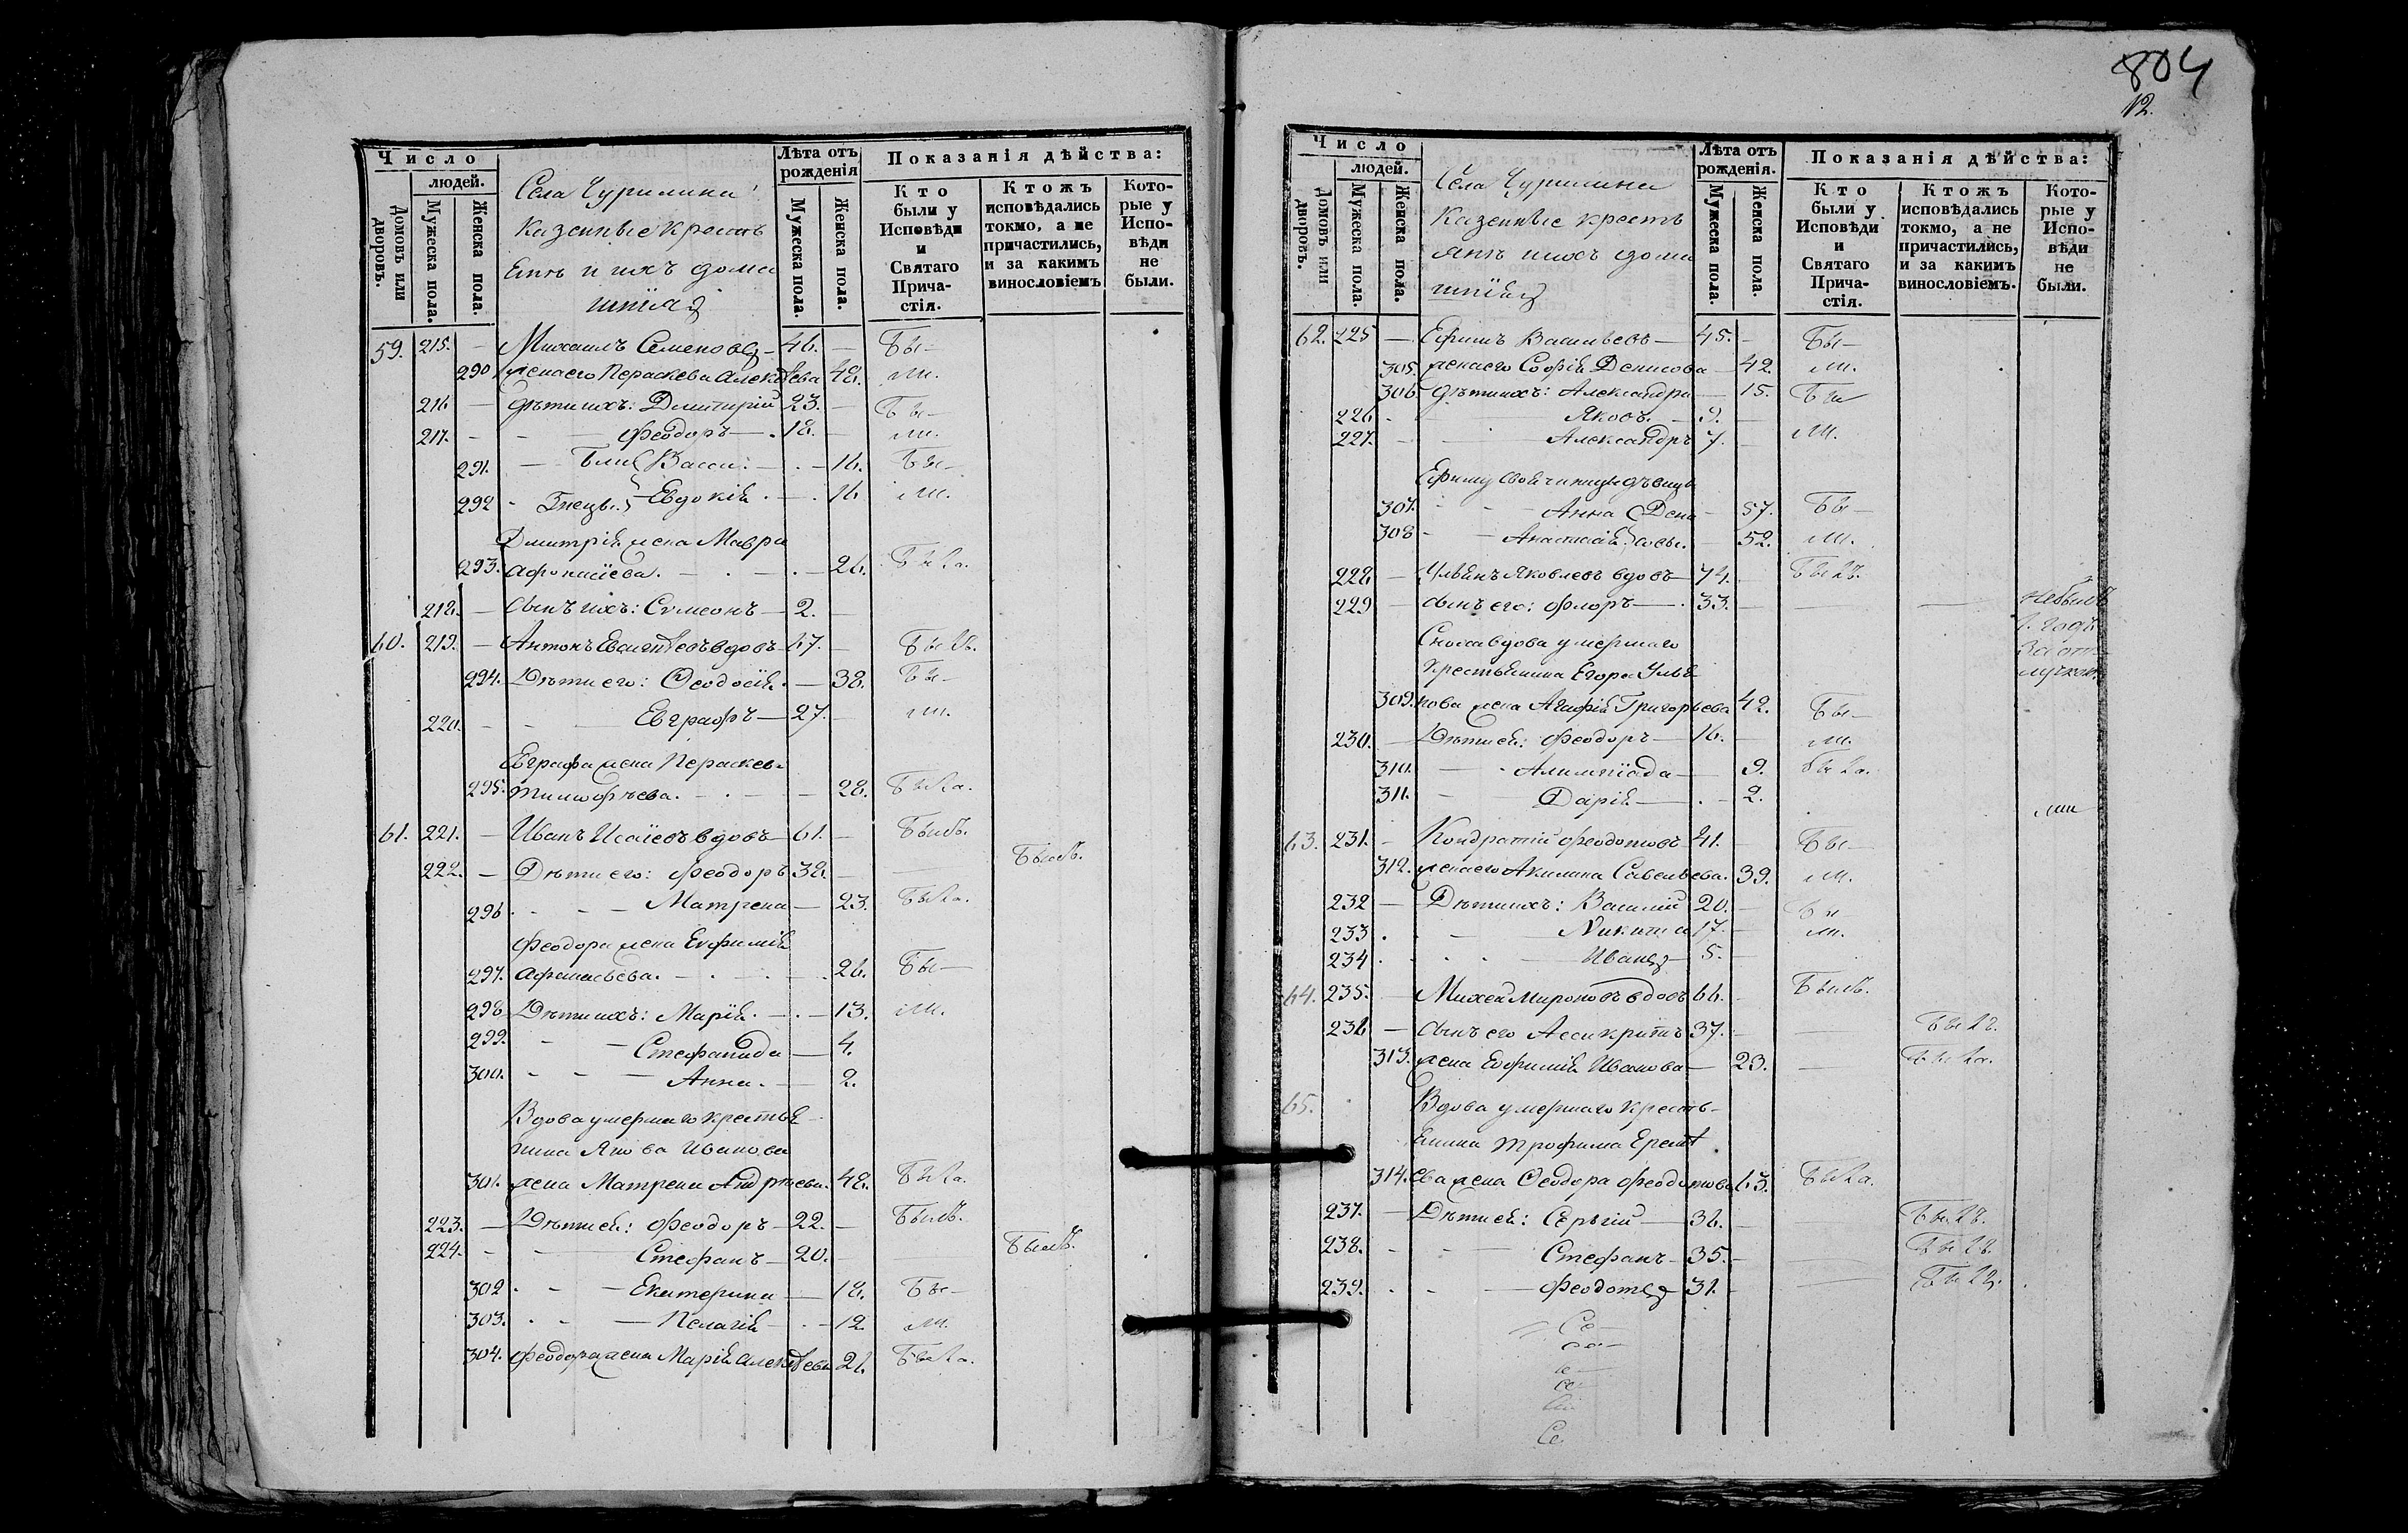 804
12.
Число
людей.
Домовъ или дворовъ.
Мужеска пола.
Женска пола.
Села Чурилина
Казенные кресть
Яне и ихъ дома
шнія
Лѣта отъ рожденія
Мужеска пола.
Женска пола.
Показанія дѣйства:
Кто были у Исповѣди и Святаго Причастія.
Ктожъ исповѣдались токмо, а не причастились, и за какимъ винословіемъ
Которые у Исповѣди не были.
59. 215. — Михаилъ Семеновъ — 46. — Бы—
290 жена его Параскева Алексѣева 48. ли.
216 — дѣти ихъ: Димитрій 23. — Бы—
217. — — Феодоръ — 18. — ли.
291. — Близ Васси: — 16. Бы—
292 — Нецы. Евдокія . — 16 ли.
Димитрія жена Мавра
293. Афонасіева. — 26. Была.
218. — сынъ ихъ: Сѵмеонъ — 2. —
60. 219. — Антонъ Евсигнѣевъ вдовъ — 67. — Былъ.
294. Дѣти его: Феодосія . — 38. Бы—
220. — — Евграфъ — 27. — ли.
Евграфа жена Параскева
295. Тимофѣева. — 28. Была.
61. 221. — Иванъ Исаіевъ вдовъ — 61. — Былъ.
222. — Дѣти его: Феодоръ 38. — Былъ.
296 — — Матрена — 23. Была.
Феодора жена Евфимія
297. Афанасьева. — 26. Бы—
298 Дѣти ихъ: Марія . — 13. ли.
299. — — Стефанида — 4.
300. — — Анна. — 2.
Вдова умершаго крестья
нина Якова Иванова
301. жена Матрена Андреева. 48. Была.
223. — Дѣти ея: Феодоръ — 22. — Былъ.
224. — — Стефанъ — 20. — Былъ.
302 — — Екатерина — 18. Бы—
303. — — Пелагія — 12 ли.
304. Феодора жена Марія Алексѣева 21. Была.
Число
людей.
Домовъ или дворовъ.
Мужеска пола.
Женска пола.
Села Чурилина
Казенные кресть
яне и ихъ дома
шнія
Лѣта отъ рожденія.
Мужеска пола.
Женска пола.
Показанія дѣйства:
Кто были у Исповѣди и Святаго Причастія.
Ктожъ исповѣдались токмо, а не причастились, и за какимъ винословіемъ.
Которые у Исповѣди не были.
62. 225 — Ефимъ Васильевъ — 45. — Бы—
305. жена его Софія Денисова — 42 ли.
306 дѣти ихъ: Александра — 15. Бы
226 — Яковъ. — 9. —
227. — — Александръ 7. — ли.
Ефиму свояченицы дѣвицы
307. — — Анна Дени — 57. Бы—
308 — — Анастасія совы. — 52. ли.
228 — Ульянъ Яковлевъ вдовъ — 74. — Былъ.
229 — сынъ его: Флоръ — 33. — Небылъ
1. годъ
За от
лучкою
Сноха вдова умершаго
крестьянина Егора Улья
309. нова жена Агафія Григорьева 42. Бы—
230. — Дѣти ея: Феодоръ — 16. — ли.
310. — Алимпіада — 9. Была.
311. — Дарія — 2.
63. 231. — Кондратій Феодотовъ 41. — Бы—
312. жена его Акилина Савельева. 39. ли.
232 — Дѣти ихъ: Василій 20. — Бы
233 . — Никита 17. — ли.
234 . — Иванъ 5. —
64. 235. — Михей Мироновъ вдовъ 66. — Былъ.
236 — сынъ его Асигкритъ 37. — Былъ.
313. жена Евфимія Иванова — 23. — Была.
65. Вдова умершаго кресть—
янина Трофима Еремѣ
314. ева жена Феодора Феодотова 63. Была.
237. — Дѣти ея: Сергій — 36. — Былъ.
238. — — Стефанъ — 35. — Былъ
239. — — Феодотъ 31. — Былъ.